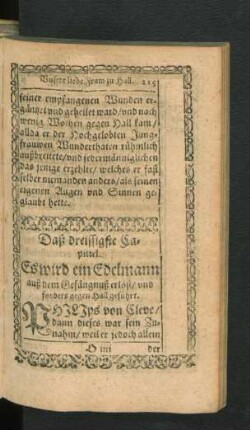 Unsere liebe Fraw zu Hall. 215
seiner empfangenen Wunden er-
gäntzet und geheilet ward/ und nach
wenig Wochen gegen Hall kam/
allda er der Hochgelobten Jung-
frauwen Wunderthaten rühmlich
außbreitete/ und jedermänniglichen
das jenige erzehlte/ welches er fast
selber niemanden anders/ als seinen
eigenen Augen und Sinnen ge-
glaubt hette.
Daß dreissigste Ca-
pittel.
Es wird ein Edelmann
auß dem Gefängnuß erlöst/ und
gegen Hall geführt.
PHILIps von Cleve/
dann dieses war sein Zu-
nahm/ weil er jedoch allein
O iiii der